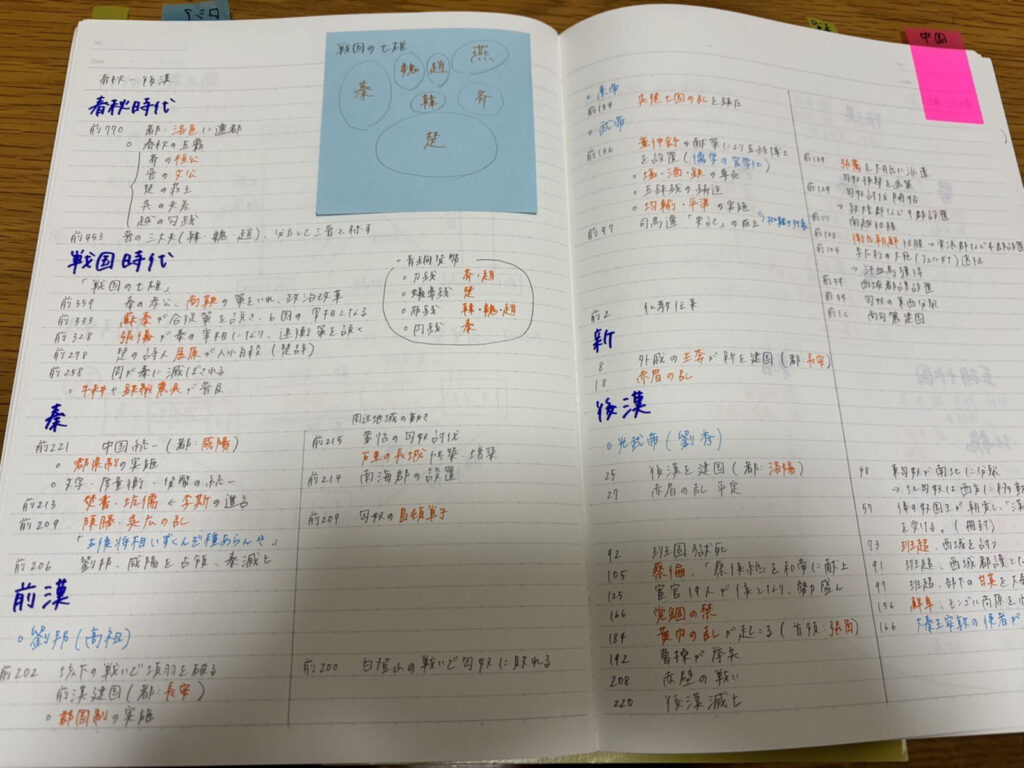 中国
春秋~後漢
春秋時代
前770 都:洛邑に遷都
○ 春秋の五覇
斉の桓公
晋の文公
楚の荘王
呉の夫差
越の勾践
前453 晋の三大夫(韓・魏・趙)、分立して三晋と称す
戦国の七雄
秦
魏
趙
燕
韓
斉
楚
戦国時代
「戦国の七雄」
前359 秦の孝公、商鞅の策をいれ、政治改革
前333 蘇秦が合従策を説き、6国の宰相となる
前328 張儀が秦の宰相になり、連衡策を説く
前278 楚の詩人屈原が入水自殺(楚辞)
前258 周が秦に滅ぼされる
○ 牛耕や鉄製農具が普及
○青銅貨幣
○ 刀銭 斉・趙
○ 蟻鼻銭 楚
○ 布銭 韓・魏・趙
○ 円銭 秦
秦
前221 中国統一(都:咸陽)
○ 郡県制の実施
○ 文字・度量衡・貨幣の統一
前213 焚書・坑儒 ← 李斯の進言
前209 陳勝・呉広の乱
「王侯将相いずくんぞ種あらんや」
前206 劉邦、咸陽を占領、秦滅亡
周辺地域の動き
前215 蒙恬の匈奴討伐
万里の長城 修築・増築
前214 南海郡の設置
前209 匈奴の冒頓単于
前漢
○劉邦(高祖)
前202 垓下の戦いで項羽を破る
前漢建国(都:長安)
○ 郡国制の実施
前200 白登山の戦いで匈奴に敗れる
○ 景帝
前154 呉楚七国の乱を鎮圧
○ 武帝
前136 董仲舒の献策により五経博士
を設置(儒学の官学化)
○ 塩・酒・鉄の専売
○ 五銖銭の鋳造
○ 均輸・平準の実施
前97 司馬遷「史記」の成立
前2 仏教伝来
前139 張騫を大月氏に派遣
前129 匈奴討伐開始
前111 南越征服
衛氏朝鮮征服
前104
西域都護設置
匈奴の東西分裂
新
8 外戚の王莽が新を建国(都:長安)
18 赤眉の乱
後漢
○光武帝(劉秀)
25 後漢を建国(都:洛陽)
27 赤眉の乱 平定
92 班固獄死
105 蔡倫、「蔡侯紙」を和帝に献上
125 宦官19人が侯となり、勢力盛ん
166 党錮の禁
184 黄巾の乱が起こる(首領:張角)
192 曹操が挙兵
208 赤壁の戦い
220 後漢滅亡
48 東匈奴が南北に分裂
→ 北匈奴は西方に移動
57 倭の奴国王が朝貢し、「漢
を受ける。(冊封)
73 班超、西域を討つ
91 班超、西域都護となる
97 班超、部下の甘英を大
156 鮮卑、モンゴル高原を
166 大秦王安敦の使者が